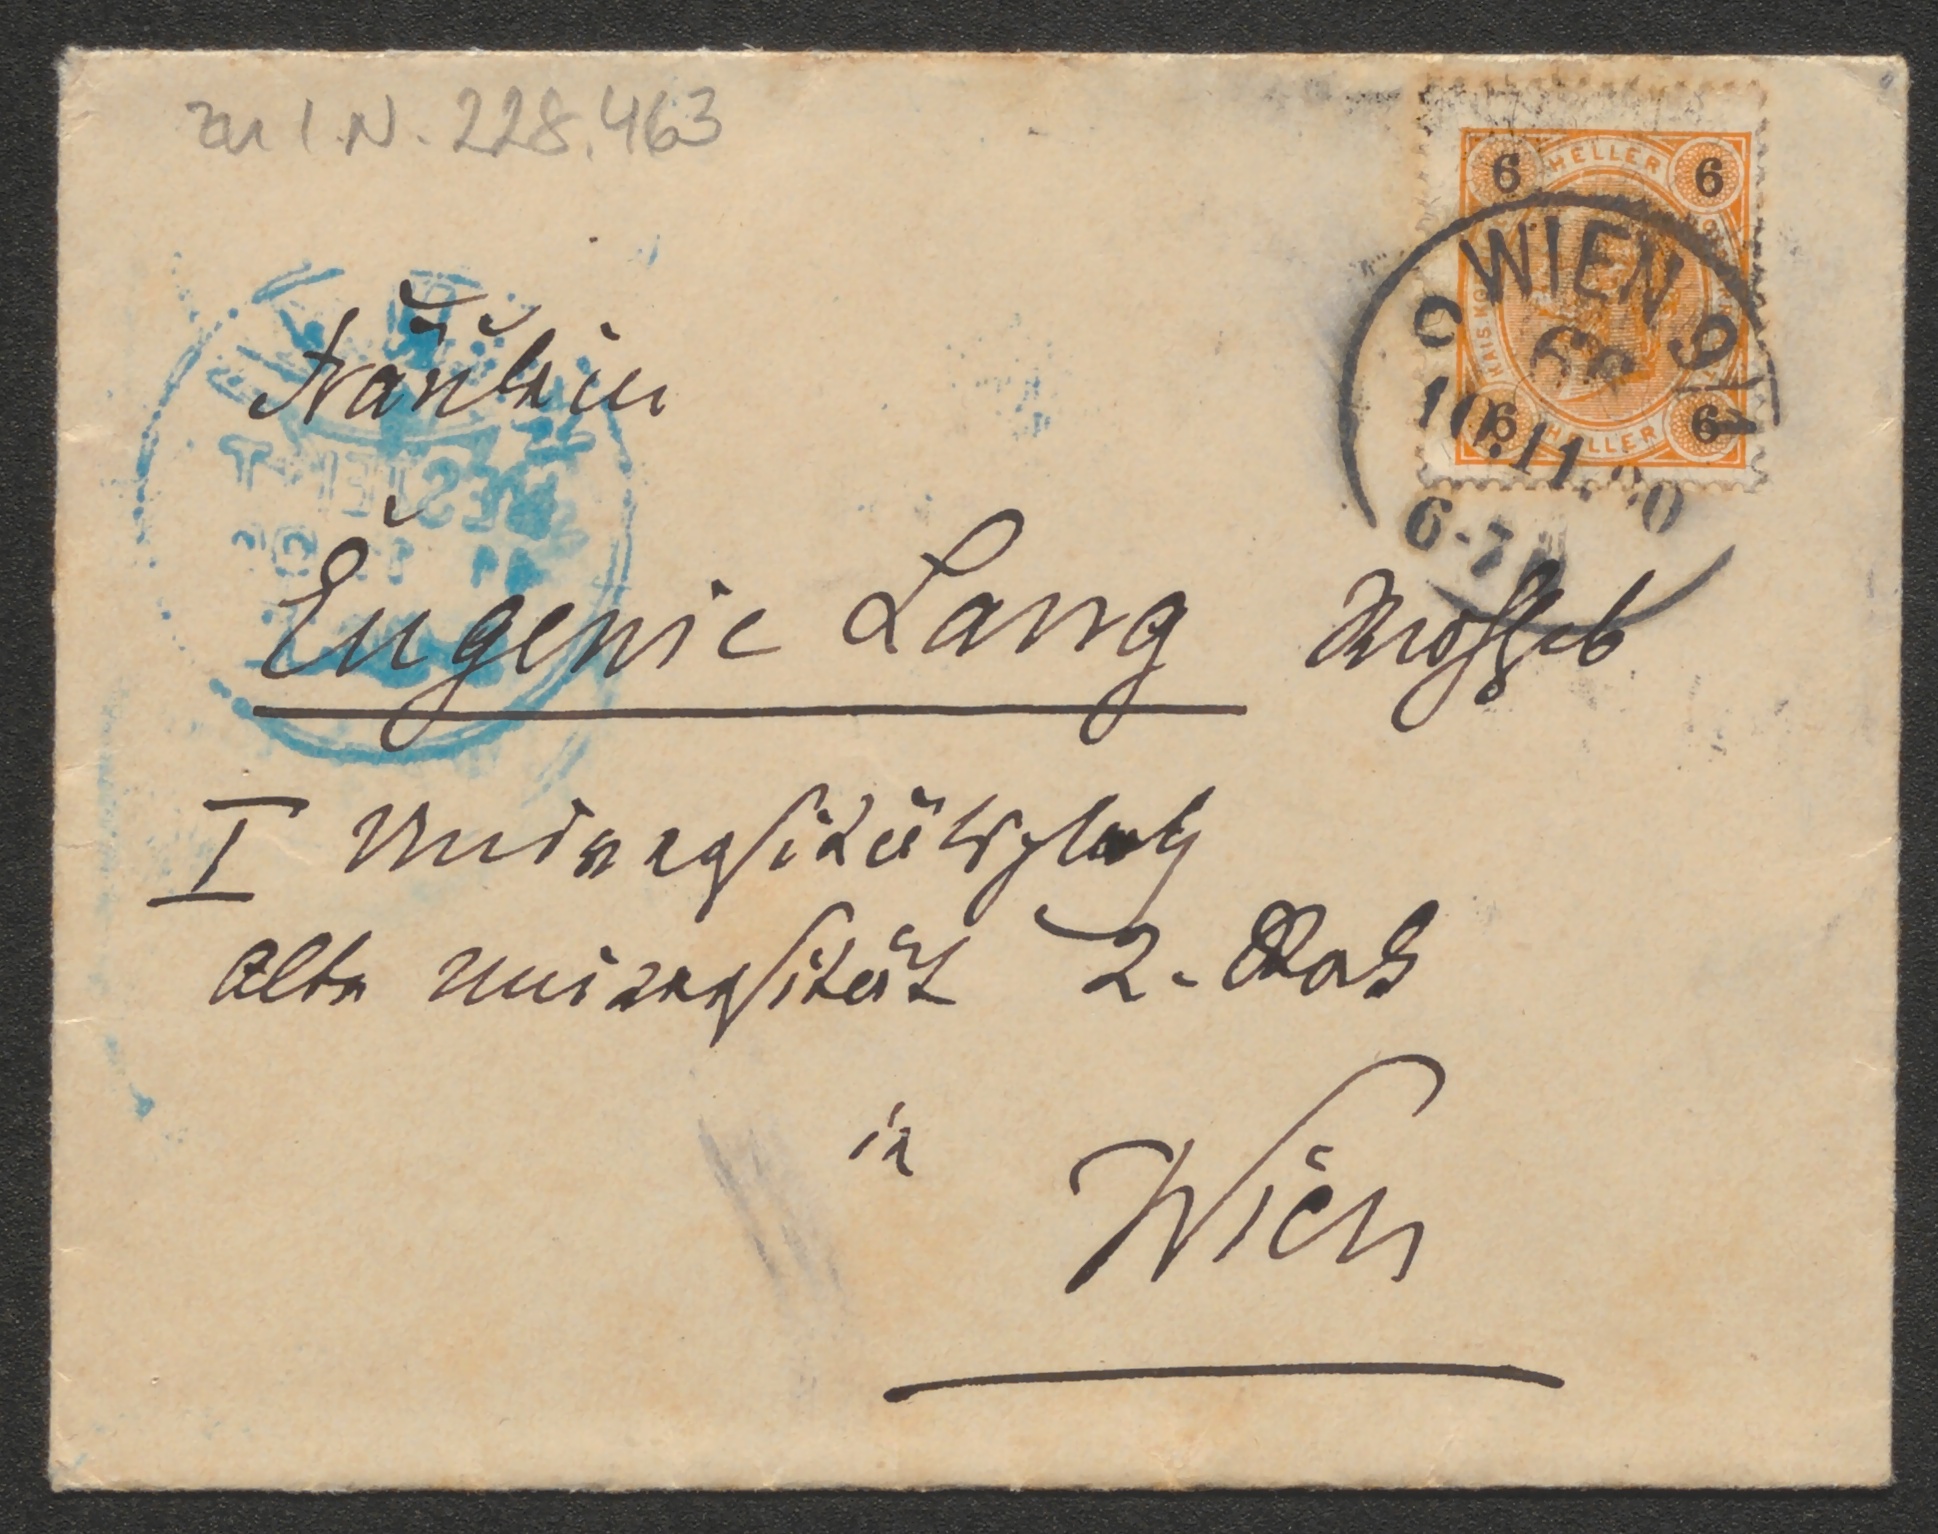 zu I.N. 228.463
6 HELLER 6
WIEN
10.11.00
6-7
6 HELLER 6
Fräulein
BESTELLT
Eugenie Lang
I Universitätsplatz
Alte Universität 2. Stock
in
Wien